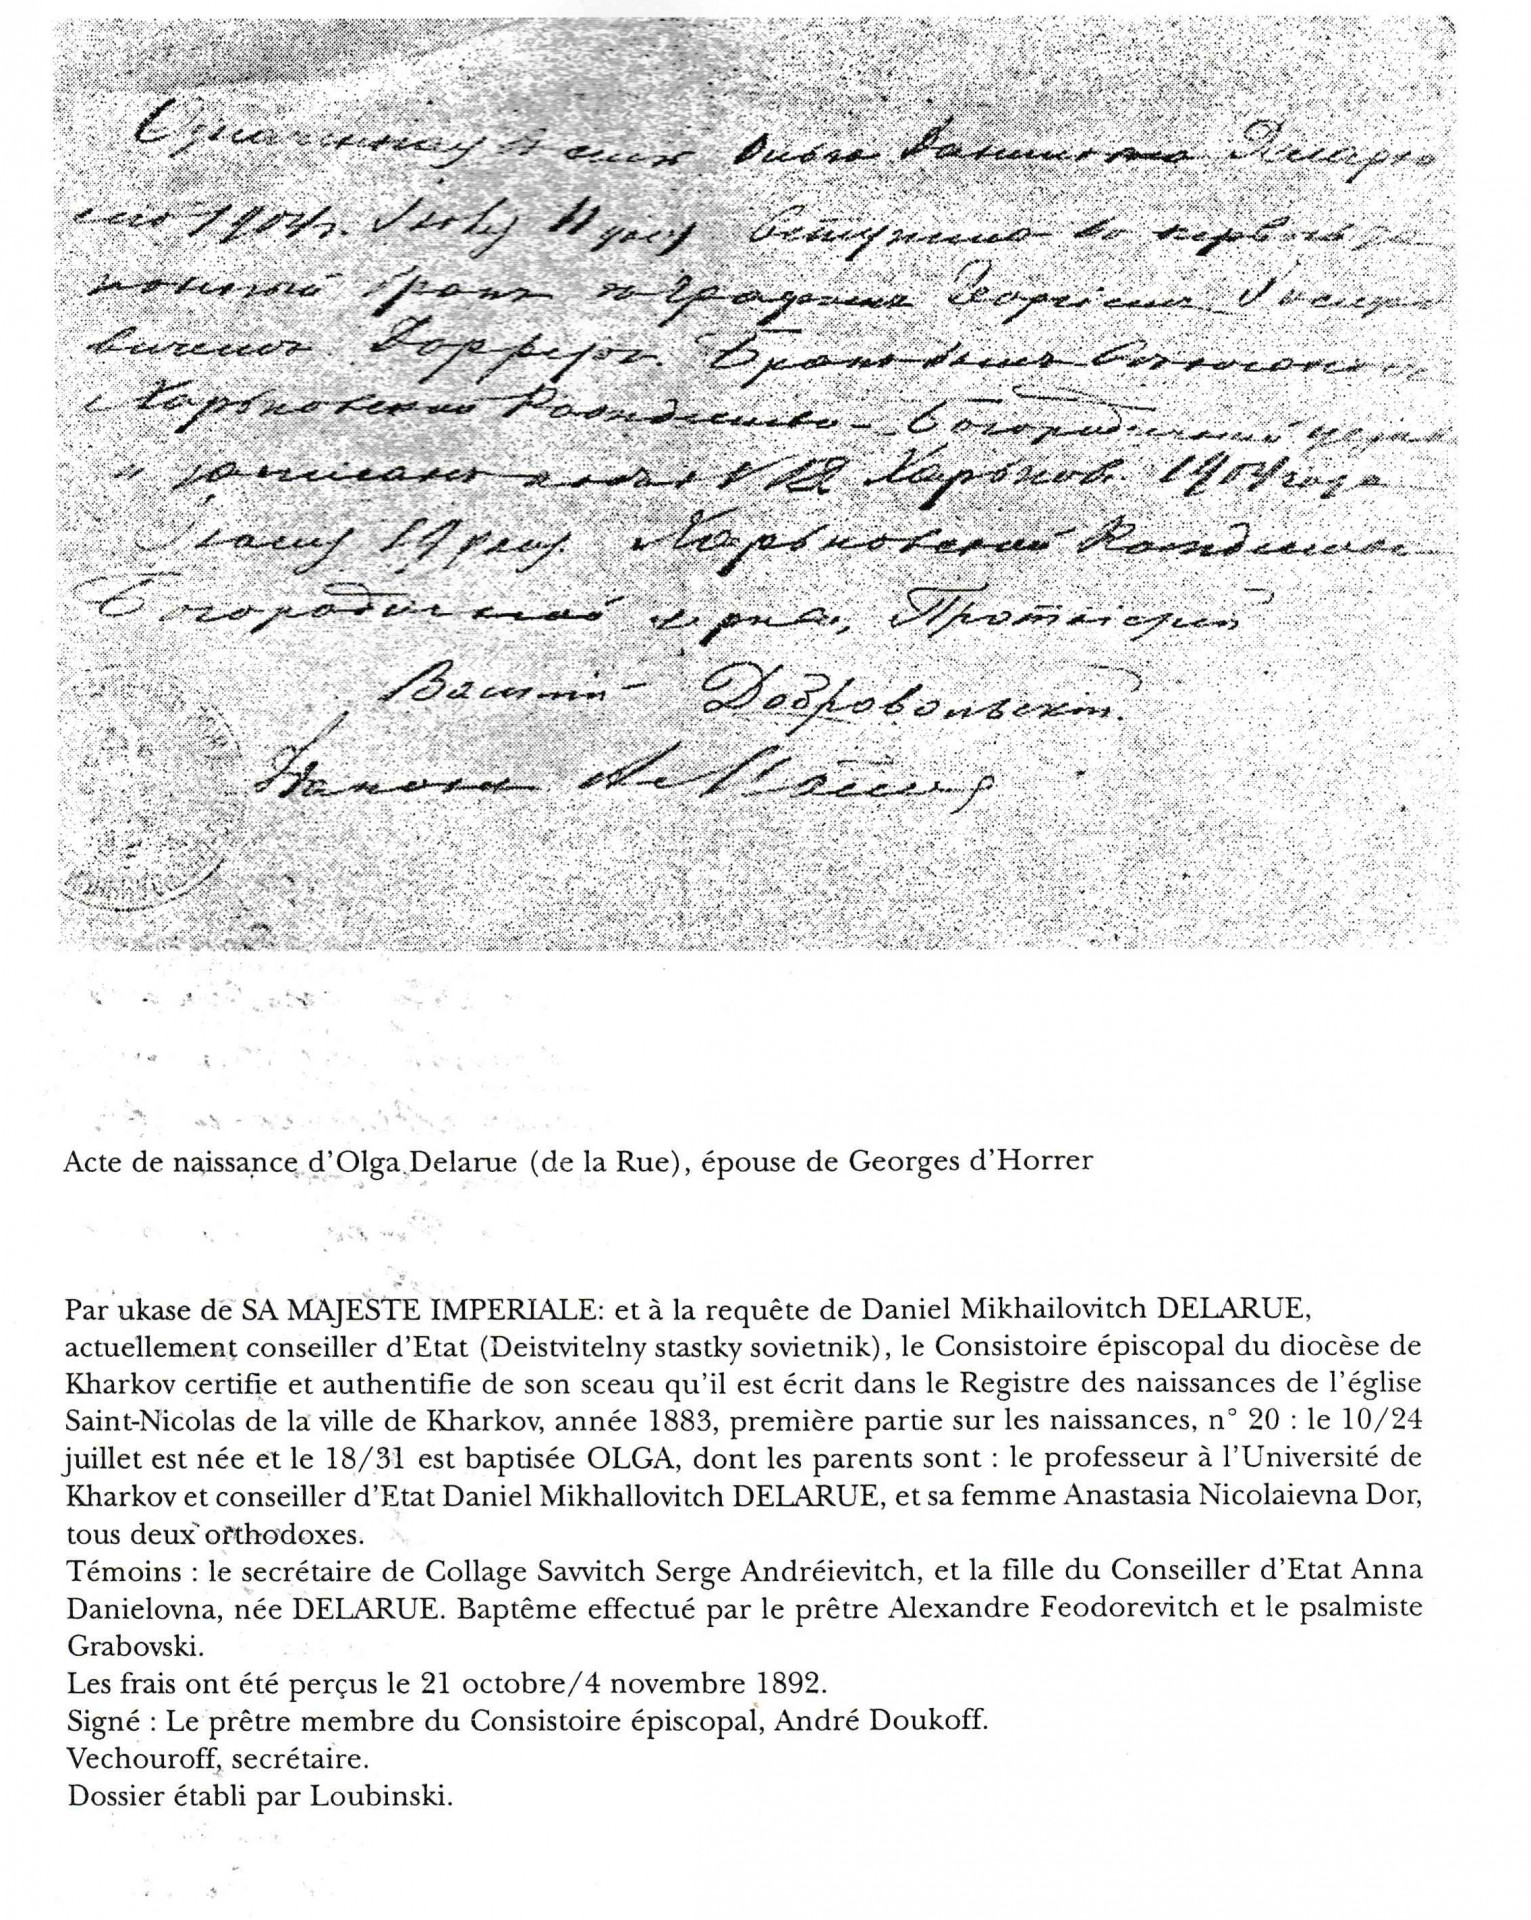 Означенная въ семъ Ольга Даниловна Деларю
1904 г. Іюля 11 дня вступила въ первый за
конный бракъ съ Графомъ Георгіемъ Іосифо
вичемъ Дорреръ. Бракъ
Харьковской Рождество-Богородичной церкви
и записанъ подъ № 12. Харьковъ. 1904 года
Харьковской Рождество
Богородичной церкви, Протоіерей
Василій Добровольскій.
Acte de naissance d'Olga Delarue (de la Rue), épouse de Georges d'Horrer
Par ukase de SA MAJESTE IMPERIALE: et à la requête de Daniel Mikhailovitch DELARUE,
actuellement conseiller d'Etat (Deistvitelny stastky sovietnik), le Consistoire épiscopal du diocèse de
Kharkov certifie et authentifie de son sceau qu'il est écrit dans le Registre des naissances de l'église
Saint-Nicolas de la ville de Kharkov, année 1883, première partie sur les naissances, n° 20 : le 10/24
juillet est née et le 18/31 est baptisée OLGA, dont les parents sont : le professeur à l'Université de
Kharkov et conseiller d'Etat Daniel Mikhallovitch DELARUE, et sa femme Anastasia Nicolaievna Dor,
tous deux orthodoxes.
Témoins : le secrétaire de Collage Savvitch Serge Andréievitch, et la fille du Conseiller d'Etat Anna
Danielovna, née DELARUE. Baptême effectué par le prêtre Alexandre Feodorevitch et le psalmiste
Grabovski.
Les frais ont été perçus le 21 octobre/4 novembre 1892.
Signé : Le prêtre membre du Consistoire épiscopal, André Doukoff.
Vechouroff, secrétaire.
Dossier établi par Loubinski.